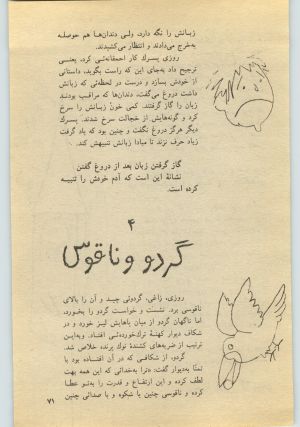 زبانش را نگه دارد، ولی دندان‌ها هم حوصله
به‌خرج می‌دادند و انتظار می‌کشیدند.
روزی پسرك کار احمقانه‌ئی کرد، یعنی
ترجیح داد به‌جای این که راست بگوید، داستانی
از خودش بسازد و درست در لحظه‌ئی که زبانش
داشت دروغ می‌گفت، دندان‌ها که مراقب بودند
زبان را گاز گرفتند. کمی خون زبانش را سرخ
کرد و گونه‌هایش از خجالت سرخ شدند. پسرك
دیگر هرگز دروغ نگفت و چنین بود که یاد گرفت
زیاد حرف نزند تا مبادا زبانش تنبیهش کند.
گاز گرفتن زبان بعد از دروغ گفتن
نشانهٔ این است که آدم خودش را تنبیه
کرده است.
۴
گردو و ناقوس
روزی، زاغی، گردوئی چید و آن را بالای
ناقوسی برد. نشست و خواست گردو را بخورد،
اما ناگهان گردو از میان پاهایش لیز خورد و در
شکاف دیوار کهنهٔ ترك‌خورده‌ئی افتاد. و به‌این
ترتیب از ضربه‌های کشندهٔ نوك پرنده خلاص شد.
گردو، از شکافی که در آن افتاده بود با
تمنّا به‌دیوار گفت: «ترا به‌خدائی که این همه بهت
لطف کرده و این ارتفاع و قدرت را به‌تو عطا
کرده و ناقوسی چنین با شکوه و با صدائی چنین
۷۱